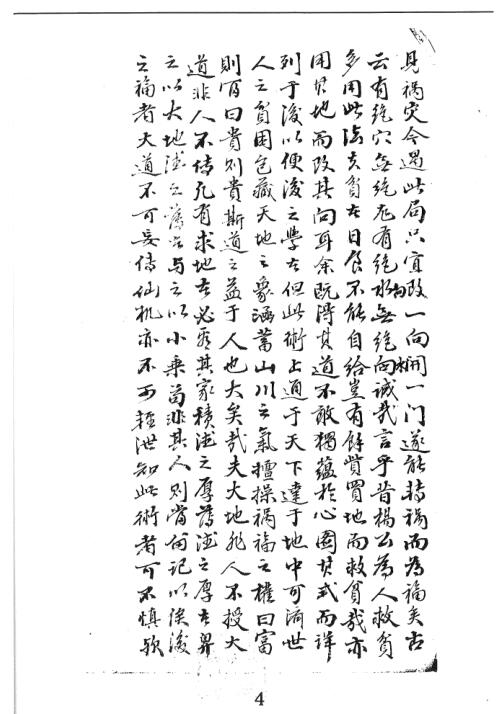 見禍灾今遇此局只宜改一向開一门遂能轉禍而為福矣古
云有絶穴無絶龙有絶水無絶向誠哉言乎昔楊公為人救貧
多用此法夫貧者日食不能自给豈有餘赀買地而救貧哉亦
用其地而改其向耳余既得其道不敢獨蕴於心圖其式而详
列于後以便後之學者但此術上通于天下達于地中可济世
人之貧困包藏天地之象涵蓄山川之氣擅操禍福之權曰富
則富曰貴則貴斯道之益于人也大矣哉夫大地非人不授大
道非人不傳凡有求地者必看其家積德之厚薄德之厚者畀
之以大地德之薄者与之以小乗苟非其人則當俻记以俟後
之福者大道不可妄傳仙机亦不可輕泄知此術者可不慎欤
4